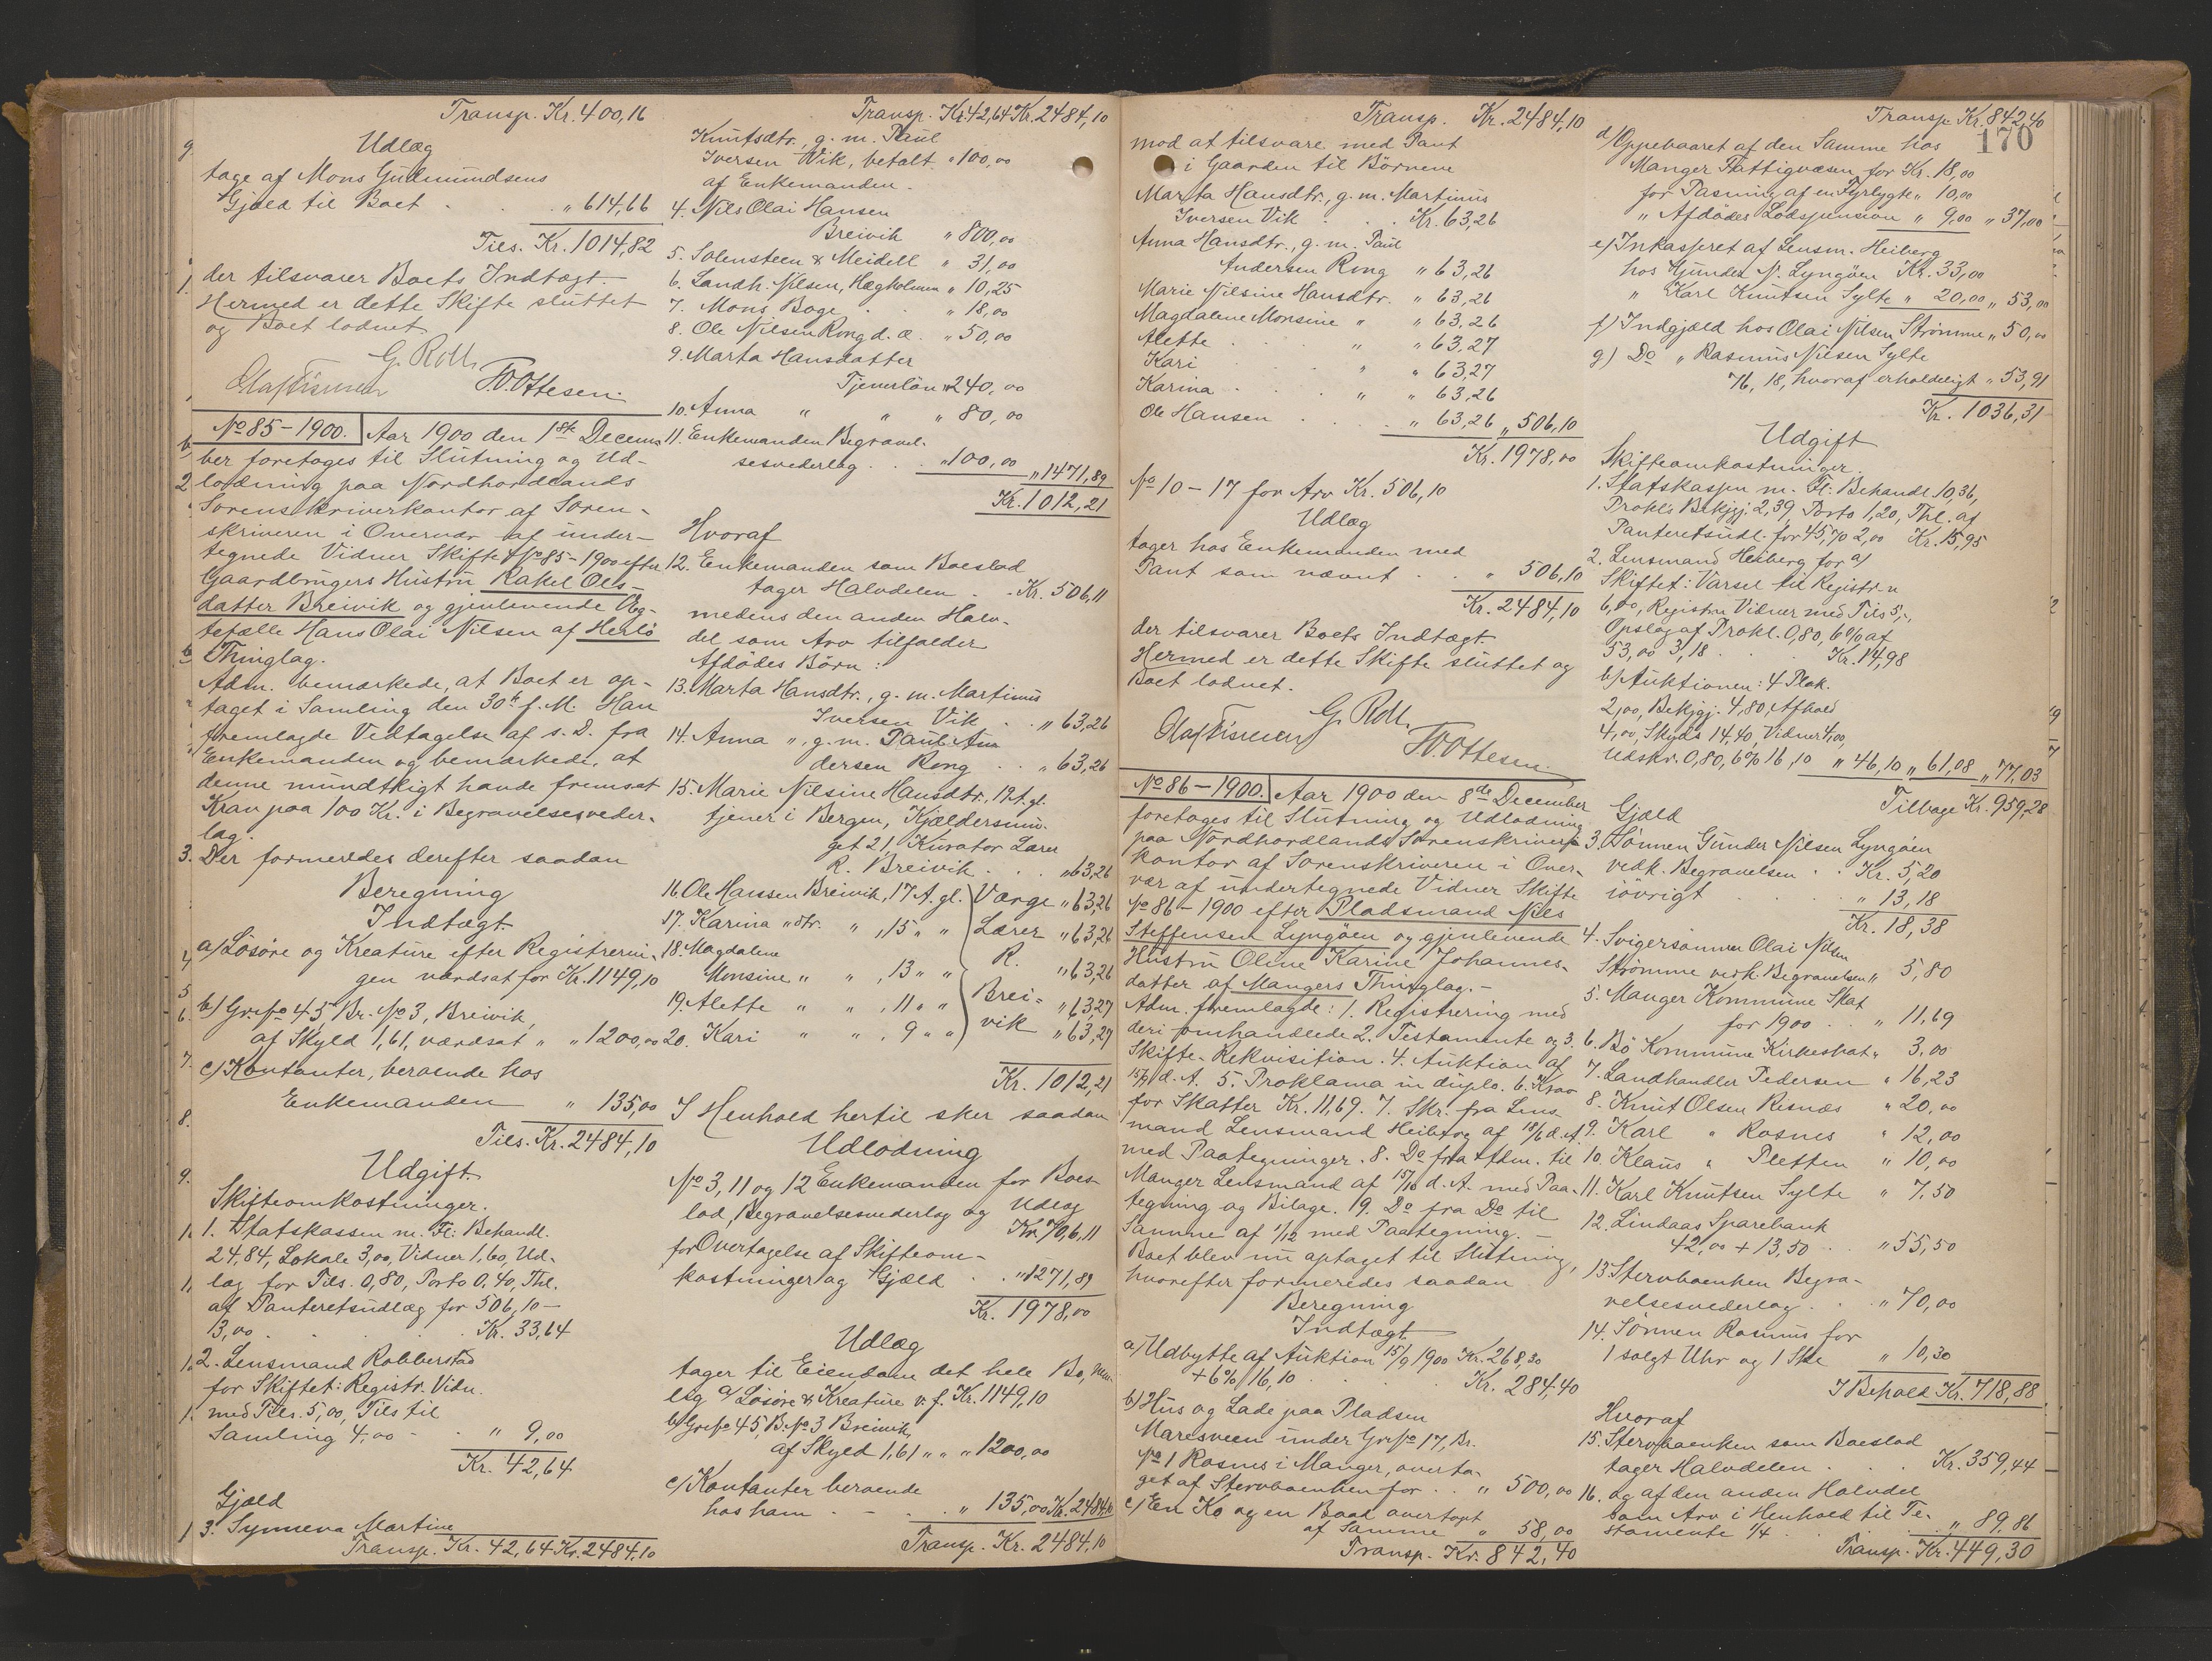 Transp. Kr. 400,16
Udlæg
tage af Mons Gudmundsens
Gjæld til Boet . . . " 614,66
Tils. Kr. 1014,82
der tilsvarer Boets Indtægt.
Hermed er dette Skifte sluttet
og Boet lodnet.
G. Roll.
Olaf Tismeer W. Ottesen.
No 85-1900. Aar 1900 den 1ste Decem-
ber foretoges til Slutning og Ud-
lodning paa Nordhordlands
Sorenskriverkontor af Soren-
skriveren i Overvær af under-
tegnede Vidner Skifte No 85-1900 efter
Gaardbrugers Hustru Rakel Ols-
datter Breivik og gjenlevende Æg-
tefælle Hans Olai Nilsen af Herlö
Thinglag.
Adm. bemærkede, at Boet er op-
taget i Samling den 30te f. M. Han
fremlagde Vedtagelse af s. D. fra
Enkemanden og bemærkede, at
denne mundtligt havde fremsat
Krav paa 100 Kr. i Begravelsesveder-
lag.
Der formeredes derefter saadan
Beregning
Indtægt.
a) Lösöre og Kreature efter Registrerin-
gen værdsat for Kr. 1149,10
b) Gr. No 45 Br. No 3, Breivik,
af Skyld 1,61, værdsat " " 1200,00
c) Kontanter, beroende hos
Enkemanden " 135,00
Tils. Kr. 2484,10
Udgift.
Skifteomkostninger.
1. Statskassen m. Fl: Behandl.
24,84, Lokale 3,00, Vidner 1,60, Ud-
læg for Tils. 0,80, Porto 0,40, Thl.
af Panteretsudlæg for 506,10 -
3,00 . . . Kr. 33,64
2. Lensmand Robberstad
for Skiftet: Registr. Vidn.
med Tils. 5,00, Tils til
Samling 4,00 - . " 9,00
Kr. 42,64
Gjæld
3. Synneva Martine
Transp. Kr. 42,64 Kr. 2484,10
Transp. Kr. 42,64 Kr. 2484,10
Knutsdtr., g. m. Paul
Iversen Vik, betalt " 100,00
af Enkemanden.
4. Nils Olai Hansen
Breivik " 800,00
5. Solensteen & Meidell " 31,00
6. Landh. Nilsen, Hægholmen " 10,25
7. Mons Boge . . " 18,00
8. Ole Nilsen Rong d. æ. " 50,00
9. Marta Hansdatter
Tjenerlön " 240,00
10. Anna " " " 80,00
11. Enkemanden Begravel-
sesvederlag . . . " 100,00 " 1471,89
Kr. 1012,21
Hvoraf
12. Enkemanden som Boeslod
tager Halvdelen . . Kr. 506,11
medens den anden Halv-
del som Arv tilfalder
Afdödes Börn:
13. Marta Hansdtr., g. m. Martinus
Iversen Vik . . " 63,26
14. Anna ", g. m. Paul An-
dersen Rong . . " 63,26
15. Marie Nilsine Hansdtr., 19 A. gl.
tjener i Bergen, Kjældersmu-
get 21, Kurator Lærer
R. Breivik . . . " 63,26
16. Ole Hanssen Breivik, 17 A. gl. Værge " 63,26
17. Karina " dtr. " , 15 " " Lærer " 63,26
18. Magdalene
Monsine " " , 13 " " R. " 63,26
19. Alette " " , 11 " " Brei- " 63,27
20. Kari " " , 9 " " vik " 63,27
Kr. 1012,21
I Henhold hertil sker saadan
Udlodning
No 3, 11 og 12 Enkemanden for Boes-
lod, Begravelsesvederlag og Udlæg
Kr. 706,11
for Overtagelse af Skifteom-
kostninger og Gjæld . . " 1271,89
Kr. 1978,00
Udlæg
tager til Eiendom det hele Bo, nem-
lig a/ Lösöre & Kreature v. f. Kr. 1149,10
b/ Gr. No 45, B. No 3 Breivik,
af Skyld 1,61 " " " 1200,00
c/ Kontanter beroende
hos ham . - . . " 135,00 Kr. 2484,10
Transp. Kr. 2484,10
Transp. Kr. 2484,10
mod at tilsvare med Pant
i Gaarden til Börnene
Marta Hansdtr., g. m. Martinus
Iversen Vik . . Kr. 63,26
Anna Hansdtr., g. m. Paul
Andersen Rong " 63,26
Marie Nilsine Hansdtr. " 63,26
Magdalene Monsine " " 63,26
Alette . . . " " 63,27
Kari . . . " " 63,27
Karina . . . " " 63,26
Ole Hansen . . . " 63,26 " 506,10
Kr. 1978,00
No 10-17 for Arv Kr. 506,10
Udlæg
tager hos Enkemanden med
Pant som nævnt . . " 506,10
Kr. 2484,10
der tilsvarer Boets Indtægt.
Hermed er dette Skifte sluttet og
Boet lodnet.
G. Roll.
Olaf Tismeer W. Ottesen.
No 86-1900. Aar 1900 den 8de December
foretoges til Slutning og Udlodning
paa Nordhordlands Sorenskriver-
kontor af Sorenskriveren i Over-
vær af undertegnede Vidner Skifte
No 86-1900 efter Pladsmand Nils
Steffensen Lyngöen og gjenlevende
Hustru Oline Karine Johannes-
datter af Mangers Thinglag. -
Adm. fremlagde: 1. Registrering med
deri omhandlede 2. Testamente og 3.
Skifte-Rekvisition. 4. Auktion af
15/9 d. A. 5. Proklama in duplo. 6. Krav
for Skatter Kr. 11,69. 7. Skr. fra Lens-
mand Lensmand Heiberg af 18/6 d. A.
med Paategninger. 8. Do fra Adm. til
Manger Lensmand af 15/10 d. A. med Paa-
tegning og Bilage. 19. Do fra Do til
Samme af 1/12 med Paategning. -
Boet blev nu optaget til Slutning,
hvorefter formeredes saadan
Beregning
Indtægt
a) Udbytte af Auktion 15/9 1900 Kr. 268,30
+ 6% 16,10 . . . Kr. 284,40
b) Hus og Lade paa Pladsen
Maresveen under Gr. No 17, Br.
No 1 Rosnes i Manger, overta-
get af Stervboenken for . . " 500,00
c) En Ko og en Baad overtaget
af Samme " 58,00
Transp. Kr. 842,40
Transp. Kr. 842,40
170
d) Oppebaaret af den Samme hos
Manger Fattigvæsen for Kr. 18,00
for Pasning af en Fyrlygte " 10,00
" Afdödes Lodspension " 9,00 " 37,00
e) Inkasseret af Lensm. Heiberg
hos Gunder N. Lyngöen Kr. 33,00
" Karl Knutsen Sylte " 20,00 " 53,00
f) Indgjæld hos Olai Nilsen Strömme " 50,00
g) Do " Rasmus Nilsen Sylte
76,18, hvoraf erholdeligt " 53,91
Kr. 1036,31
Udgift
Skifteomkostninger.
1. Statskassen m. Fl: Behandl. 10,36,
Prokl's Bekjgj. 2,39, Porto 1,20, Thl. af
Panteretsudl. for 45,70 2,00 Kr. 15,95
2. Lensmand Heiberg for a)
Skiftet: Varsel til Registr-n
6,00, Registr. Vidner med Tils 5,-,
Opslag af Prokl. 0,80, 6% af
53,00 3,18 . . Kr. 14,98
b) Auktionen: 4 Plak.
2,00, Bekjgj. 4,80, Afhold
4,00, Skyds 14,40, Vidner 4,00,
Udskr. 0,80, 6% 16,10 " 46,10 " 61,08 " 77,03
Tilbage Kr. 959,28
Gjæld
3. Sönnen Gunder Nilsen Lyngöen
vedk. Begravelsen . . Kr. 5,20
iövrigt . . . " 13,18
Kr. 18,38
4. Svigersönnen Olai Nilsen
Strömme vedk. Begravelsen " 5,80
5. Manger Kommune Skat
for 1900 . . " 11,69
6. Bö Kommune Kirkeskat " 3,00
7. Landhandler Pedersen " 16,23
8. Knut Olsen Risnæs " 20,00
9. Karl " Rosnes " 12,00
10. Klaus " Pletten " 10,00
11. Karl Knutsen Sylte " 7,50
12. Lindaas Sparebank
42,00 + 13,50 . . " 55,50
13. Stervboenken Begra-
velsesvederlag . . " 70,00
14. Sönnen Rasmus for
1 solgt Uhr og 1 Ske " 10,30
I Behold Kr. 718,88
Hvoraf
15. Stervboenken som Boeslod
tager Halvdelen . . Kr. 359,44
16. og af den anden Halvdel
som Arv i Henhold til Te-
stamente 1/4 . . . " 89,86
Transp. Kr. 449,30